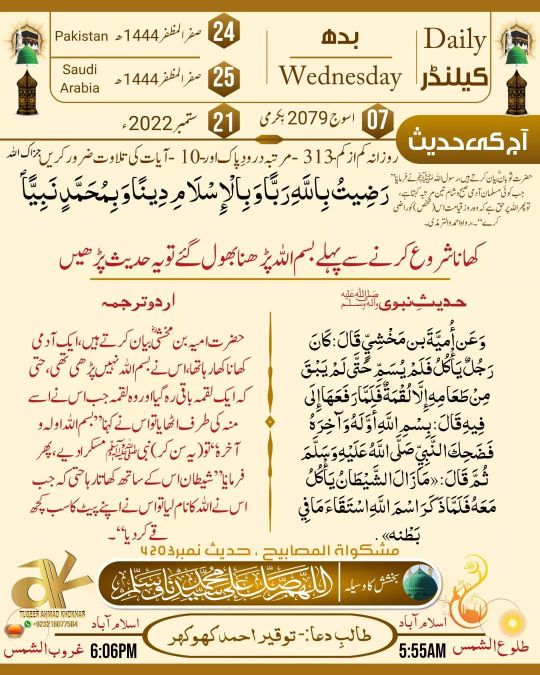 Daily
کیلنڈر
بدھ
Wednesday
24 صفر المظفر 1444ھ Pakistan
25 صفر المظفر 1444ھ Saudi Arabia
07 اسوج 2079 بکرمی
21 ستمبر 2022ء
آج کی حدیث
روزانہ کم از کم - 313 - مرتبہ درود پاک اور - 10 - آیات کی تلاوت ضرور کریں جزاک اللہ
حضرت ثوبان بیان کرتے ہیں، رسول اللہ ﷺ نے فرمایا"
جب کوئی مسلمان آدمی صبح و شام تین مرتبہ کہتا ہے،
تو پھر اللہ پر حق ہے کہ وہ روز قیامت اس (شخص) کو راضی
کرے"۔ رواہ احمد والترمذی۔
رَضِيتُ بِاللَّهِ رَبًّا وَبِالْإِسْلَامِ دِينًا وَبِمُحَمَّدٍ نَبِيًّا
کھانا شروع کرنے سے پہلے بسم اللہ پڑھنا بھول گئے تو یہ حدیث پڑھیں
حدیثِ نبوی ﷺ
وَعَنْ أُمَيَّةَ بن مَخْشِيٍّ قَالَ: كَانَ
رَجُلٌ يَأْكُلُ فَلَمْ يُسَمِّ حَتَّى لَمْ يَبْقَ
مِنْ طَعَامِهِ إِلَّا لُقْمَةٌ فَلَمَّا رَفَعَهَا إِلَى
فِيهِ قَالَ: بِسْمِ اللَّهِ أَوَّلَهُ وَآخِرَهُ
فَضَحِكَ النَّبِيُّ صَلَّى اللَّهُ عَلَيْهِ وَسَلَّمَ
ثُمَّ قَالَ: «مَا زَالَ الشَّيْطَانُ يَأْكُلُ
مَعَهُ فَلَمَّا ذَكَرَ اسْمَ اللَّهِ اسْتَقَاءَ مَا فِي
بَطْنه» .
اردو ترجمہ
حضرت امیہ بن مخشیؓ بیان کرتے ہیں، ایک آدمی
کھانا کھا رہا تھا، اس نے بسم اللہ نہیں پڑھی تھی، حتی
کہ ایک لقمہ باقی رہ گیا اور وہ لقمہ جب اس نے اسے
منہ کی طرف اٹھایا تو اس نے کہا" بسم اللہ اولہ و
آخرہ" تو (یہ سن کر) نبی ﷺ مسکرا دیے، پھر
فرمایا" شیطان اس کے ساتھ کھاتا رہا حتی کہ جب
اس نے اللہ کا نام لیا تو اس نے اپنے پیٹ کا سب کچھ
قے کر دیا"۔
مشکوٰۃ المصابیح ، حدیث نمبر 4203
بخشش کا وسیلہ
TUQEER AHMAD KHOKHAR
+923216077504
طالبِ دعا:- توقیر احمد کھوکھر
اسلام آباد
طلوع الشمس 5:55AM
اسلام آباد
غروب الشمس 6:06PM